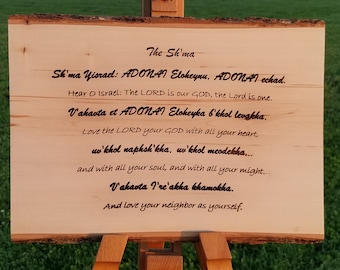 The Sh'ma
Sh'ma Yisrael: ADONAI Eloheynu, ADONAI echad.
Hear O Israel: The LORD is our GOD, the Lord is one.
V'ahavta et ADONAI Eloheyka b'khol levavkha,
Love the LORD your GOD with all your heart,
uv'khol naphsh'kha, uv'khol meodekha,..
and with all your soul, and with all your might.
V'ahavta l're'akha khamokha.
And love your neighbor as yourself.